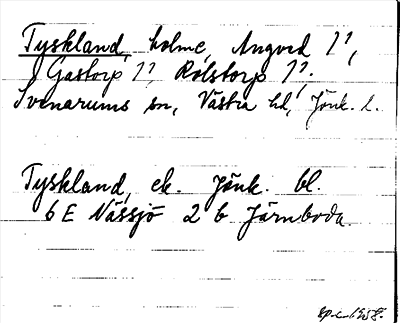 Tyskland, holme, Angved 1¹,
Gastorp 1², Rolstorp 1¹.
Svenarums sn, Västra hd, Jönk. l.
Tyskland, ek. Jönk. bl.
6 E Nässjö 2 b Järnboda.